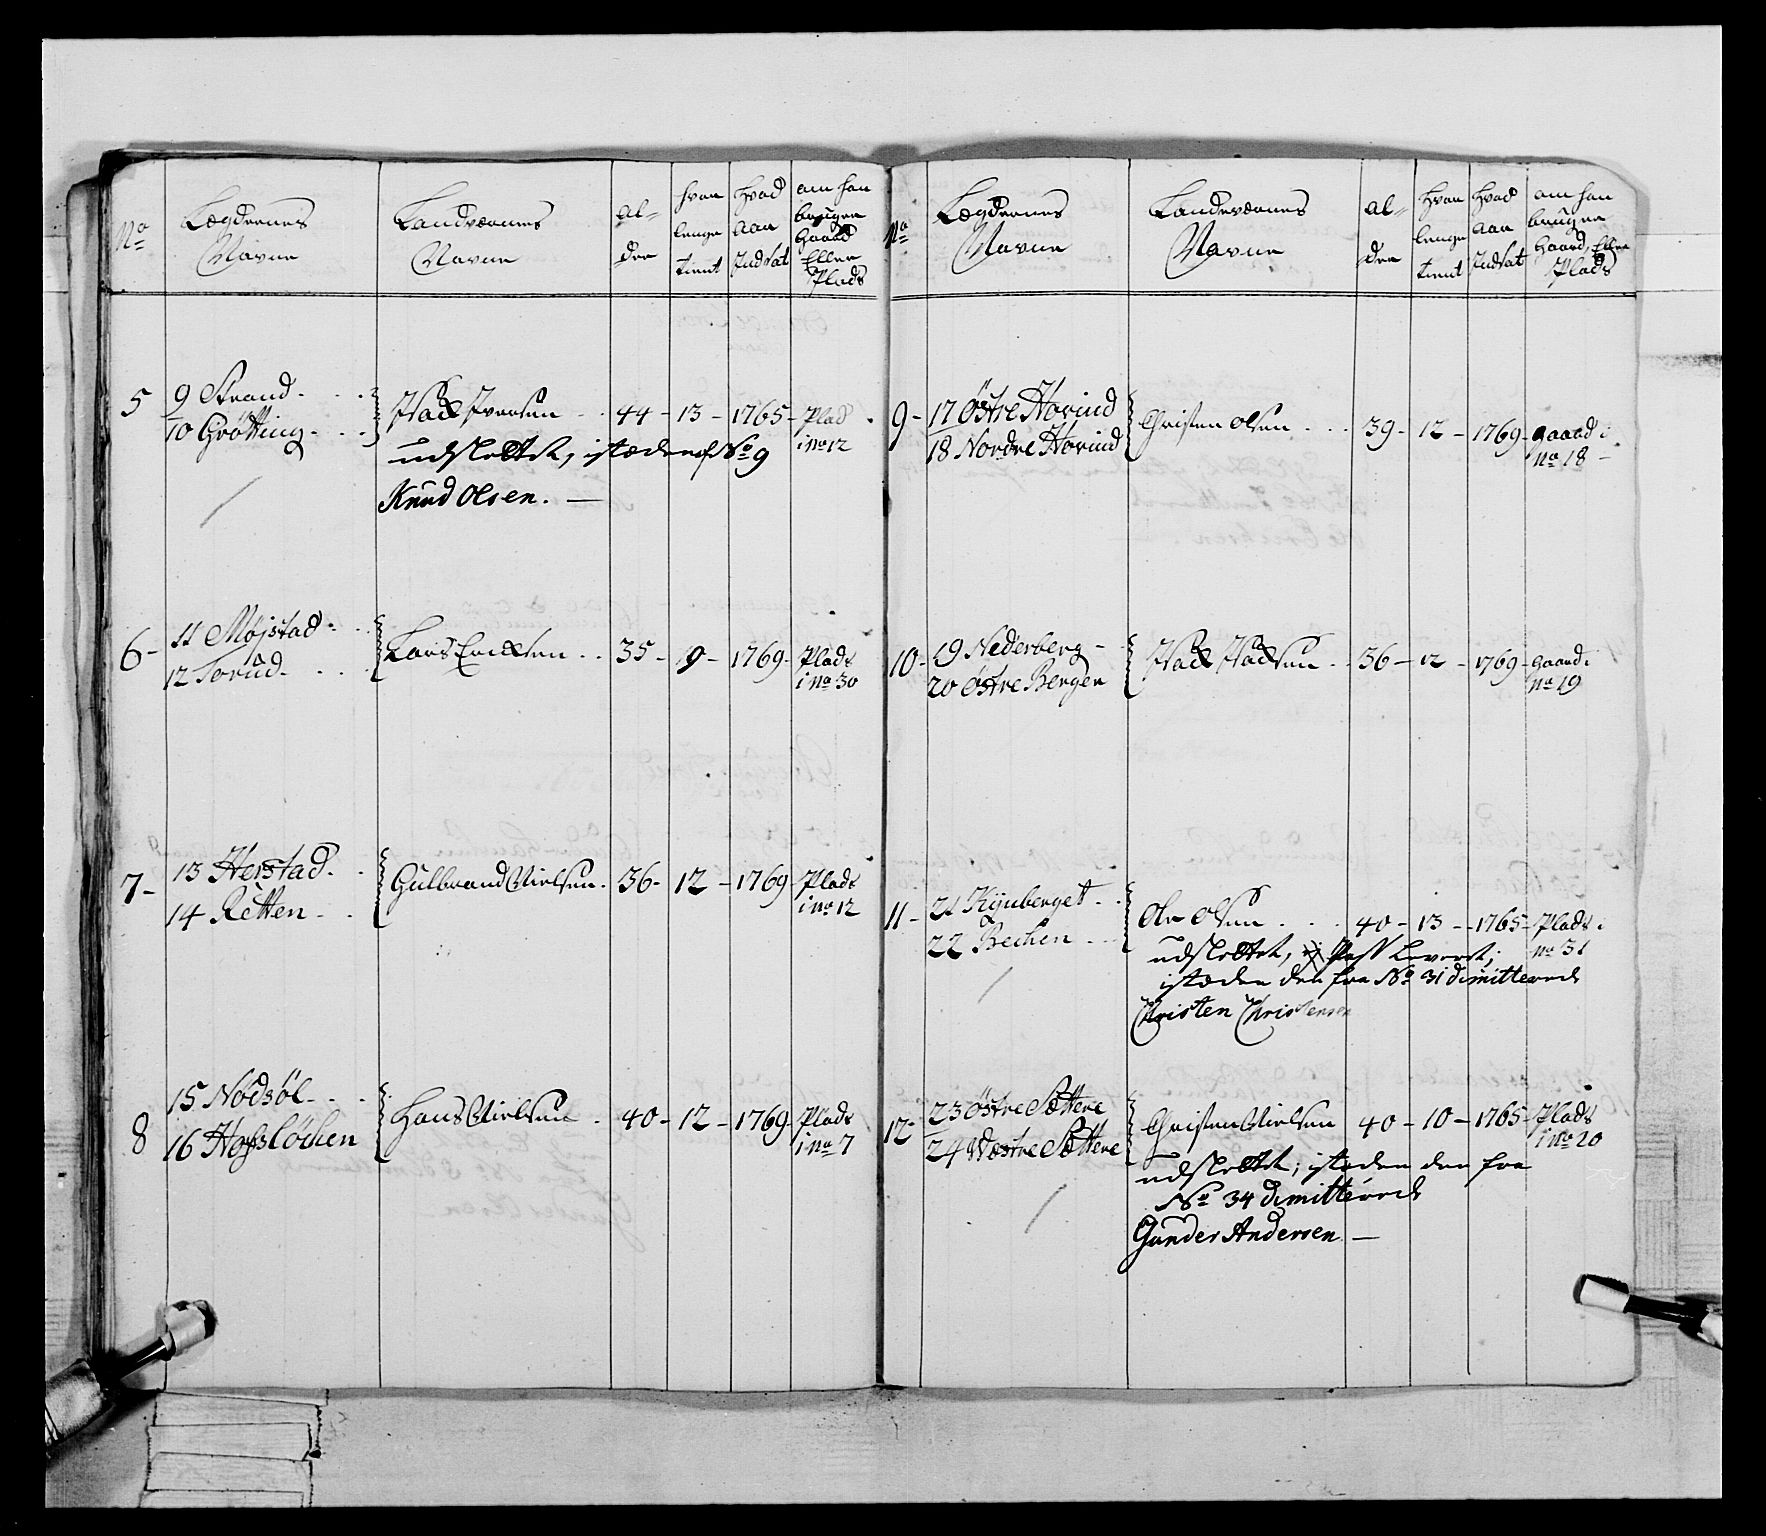 No
Lægdernes
Navne
Landværnes
Navne
Al-
der
hvor
lenge
tient
hvad
aar
Indsat
om han
bruger
Gaard
Eller
Plads
5
9 Strand
10 Grøtting
Iver Iversen 44 - 13 - 1765 - Plad
i No 12
udslettet, istæden af No 9
Knud Olsen. —
6 -
11 Møjstad
12 Torud
Lars Ericksen 35 - 9 - 1769 - Plads
i No 30
7 -
13 Herstad
14 Retten
Gulbrand Nielsen. 36 - 12 - 1769 - Plads
i No 12
8
15 Nødsøl
16 Hofsløchen
Hans Nielsen 40 - 12 - 1769 - Plads
i No 7
No
Lægdernes
Navne
Landeværnes
Navne
Al-
der
hvor
lenge
tient
hvad
aar
Indsat
om han
bruger
Gaard, Eller
Plads
9 -
17 Østre Hovind
18 Nordre Hovind
Christen Olsen 39 - 12 - 1769 - gaard i
No 18 -
10 -
19 Nederberg -
20 Østre Bergen
36 - 12 - 1769 - Gaard i
No 19
11 -
21 Kjnberget
22 Bechen
Ole Olsen 40 - 13 - 1765 - Plads i
No 31
udslettet, Pass Leveret,
istæden den fra No 31 dimitterede
Christen Christensen
12 -
23 Østre Sættere
24 Wæstre Sættere
Christen Nielsen 40 - 10 - 1765 - Plads
i No 20
udslettet, istæden den fra
No 34 dimitterede
Gunder Andersen —